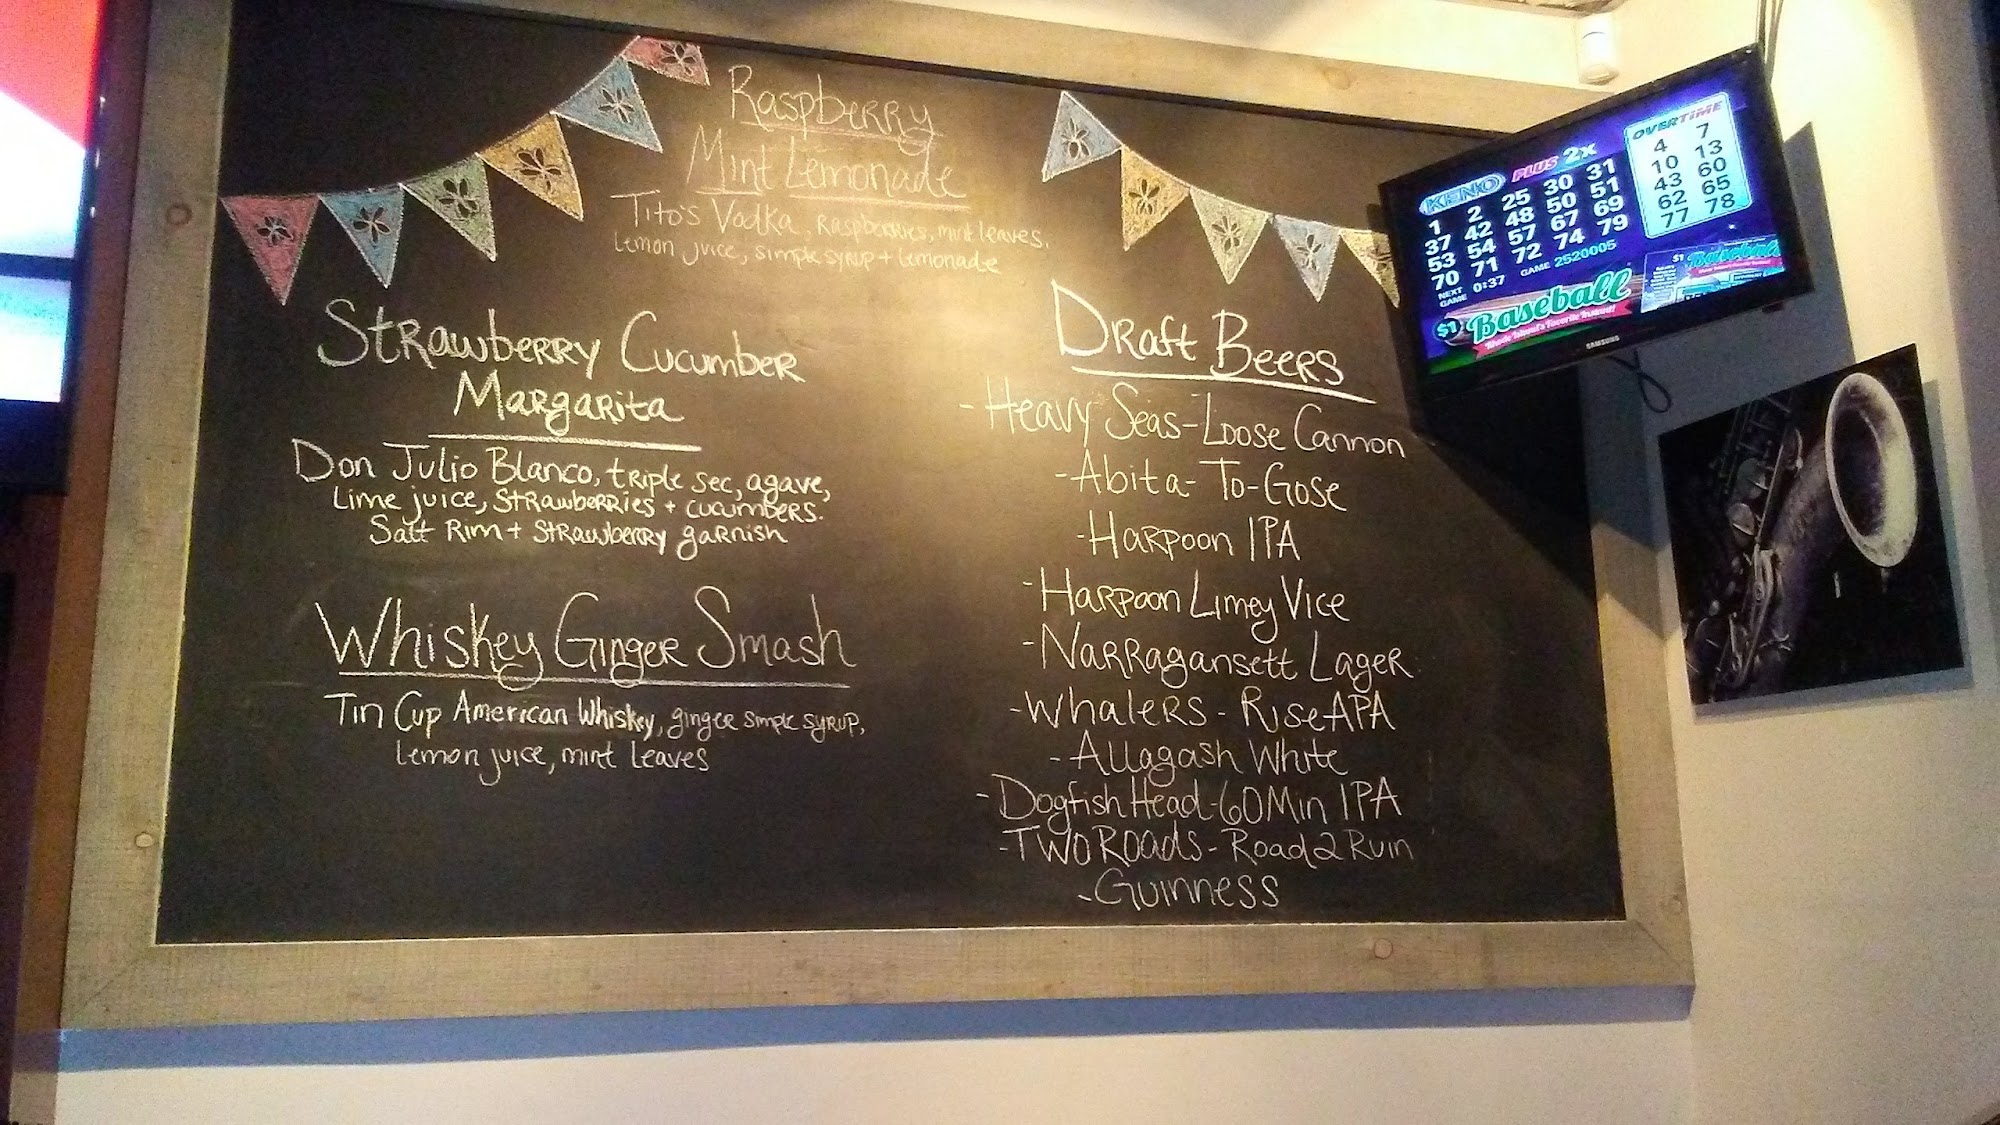 Raspberry
Mint Lemonade
Tito's Vodka, Raspberries, mint leaves,
lemon juice, simple syrup + lemonade
Strawberry Cucumber
Margarita
Don Julio Blanco, triple sec, agave,
Lime juice, strawberries + cucumbers.
Salt Rim + strawberry garnish
Whiskey Ginger Smash
Tin Cup American Whiskey, ginger simple syrup,
lemon juice, mint leaves
Draft Beers
- Heavy Seas - Loose Cannon
- Abita - To-Gose
- Harpoon IPA
- Harpoon Limey Vice
- Narragansett Lager
- Whalers - Rise APA
- Allagash White
- Dogfish Head - 60 Min IPA
- Two Roads - Road 2 Ruin
- Guinness
KENO PLUS 2x
1 2 25 30 31
37 42 48 50 51
53 54 57 67 69
70 71 72 74 79
NEXT GAME 0:37 GAME 2520005
OVERTIME
4 7
10 13
43 60
62 65
77 78
$1 Baseball
Rhode Island's Favorite Instant!
$1 Baseball
SAMSUNG